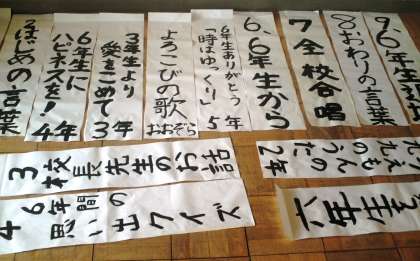 2はじめの言葉
6年生に
ハピネスを!
4年
3年生より
愛をこめて
3年
よろこびの歌
おおぞら
6年生ありがとう
「時はゆっくり」5年
6、6年生から
7全校合唱
8おわりの言葉
9、6年生
3校長先生のお話
4 6年間の
思い出クイズ
えもんの
うた 2年
六年生を